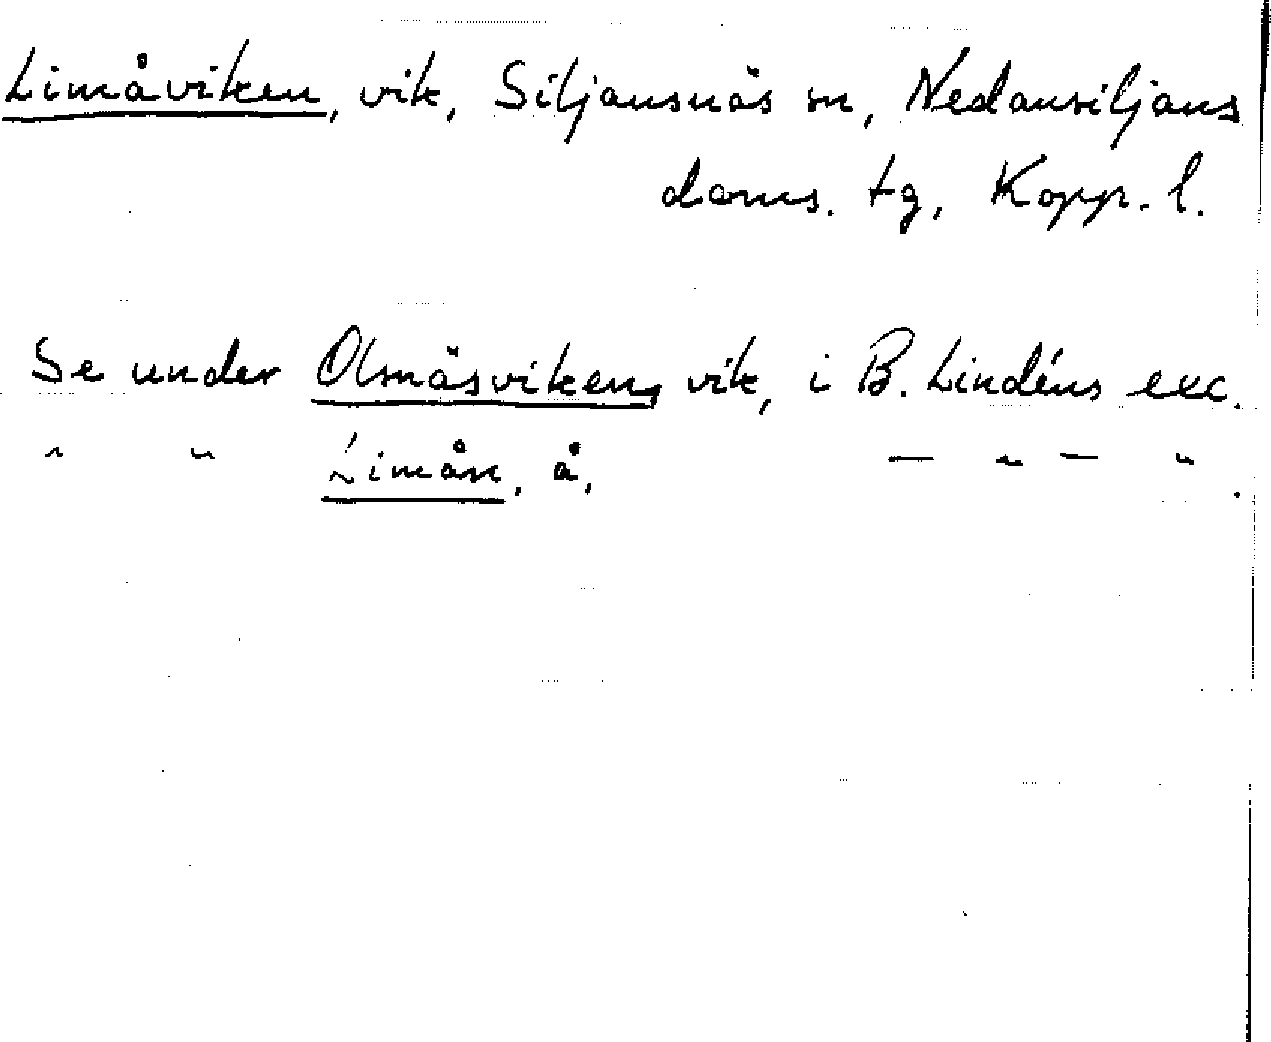 Limåviken, vik, Siljansnäs sn, Nedansiljans
doms. tg, Kopp. l.
Se under Olsnäsviken, vik, i B. Lindéns exc.
" " Limån, å, — " — " .